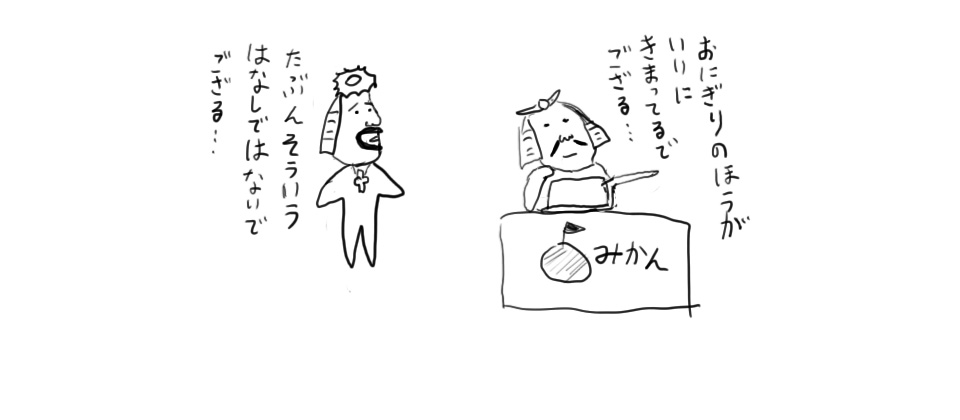 おにぎりのほうが
いいに
きまってるで
ござる…
みかん
たぶんそういう
はなしではないで
ござる…